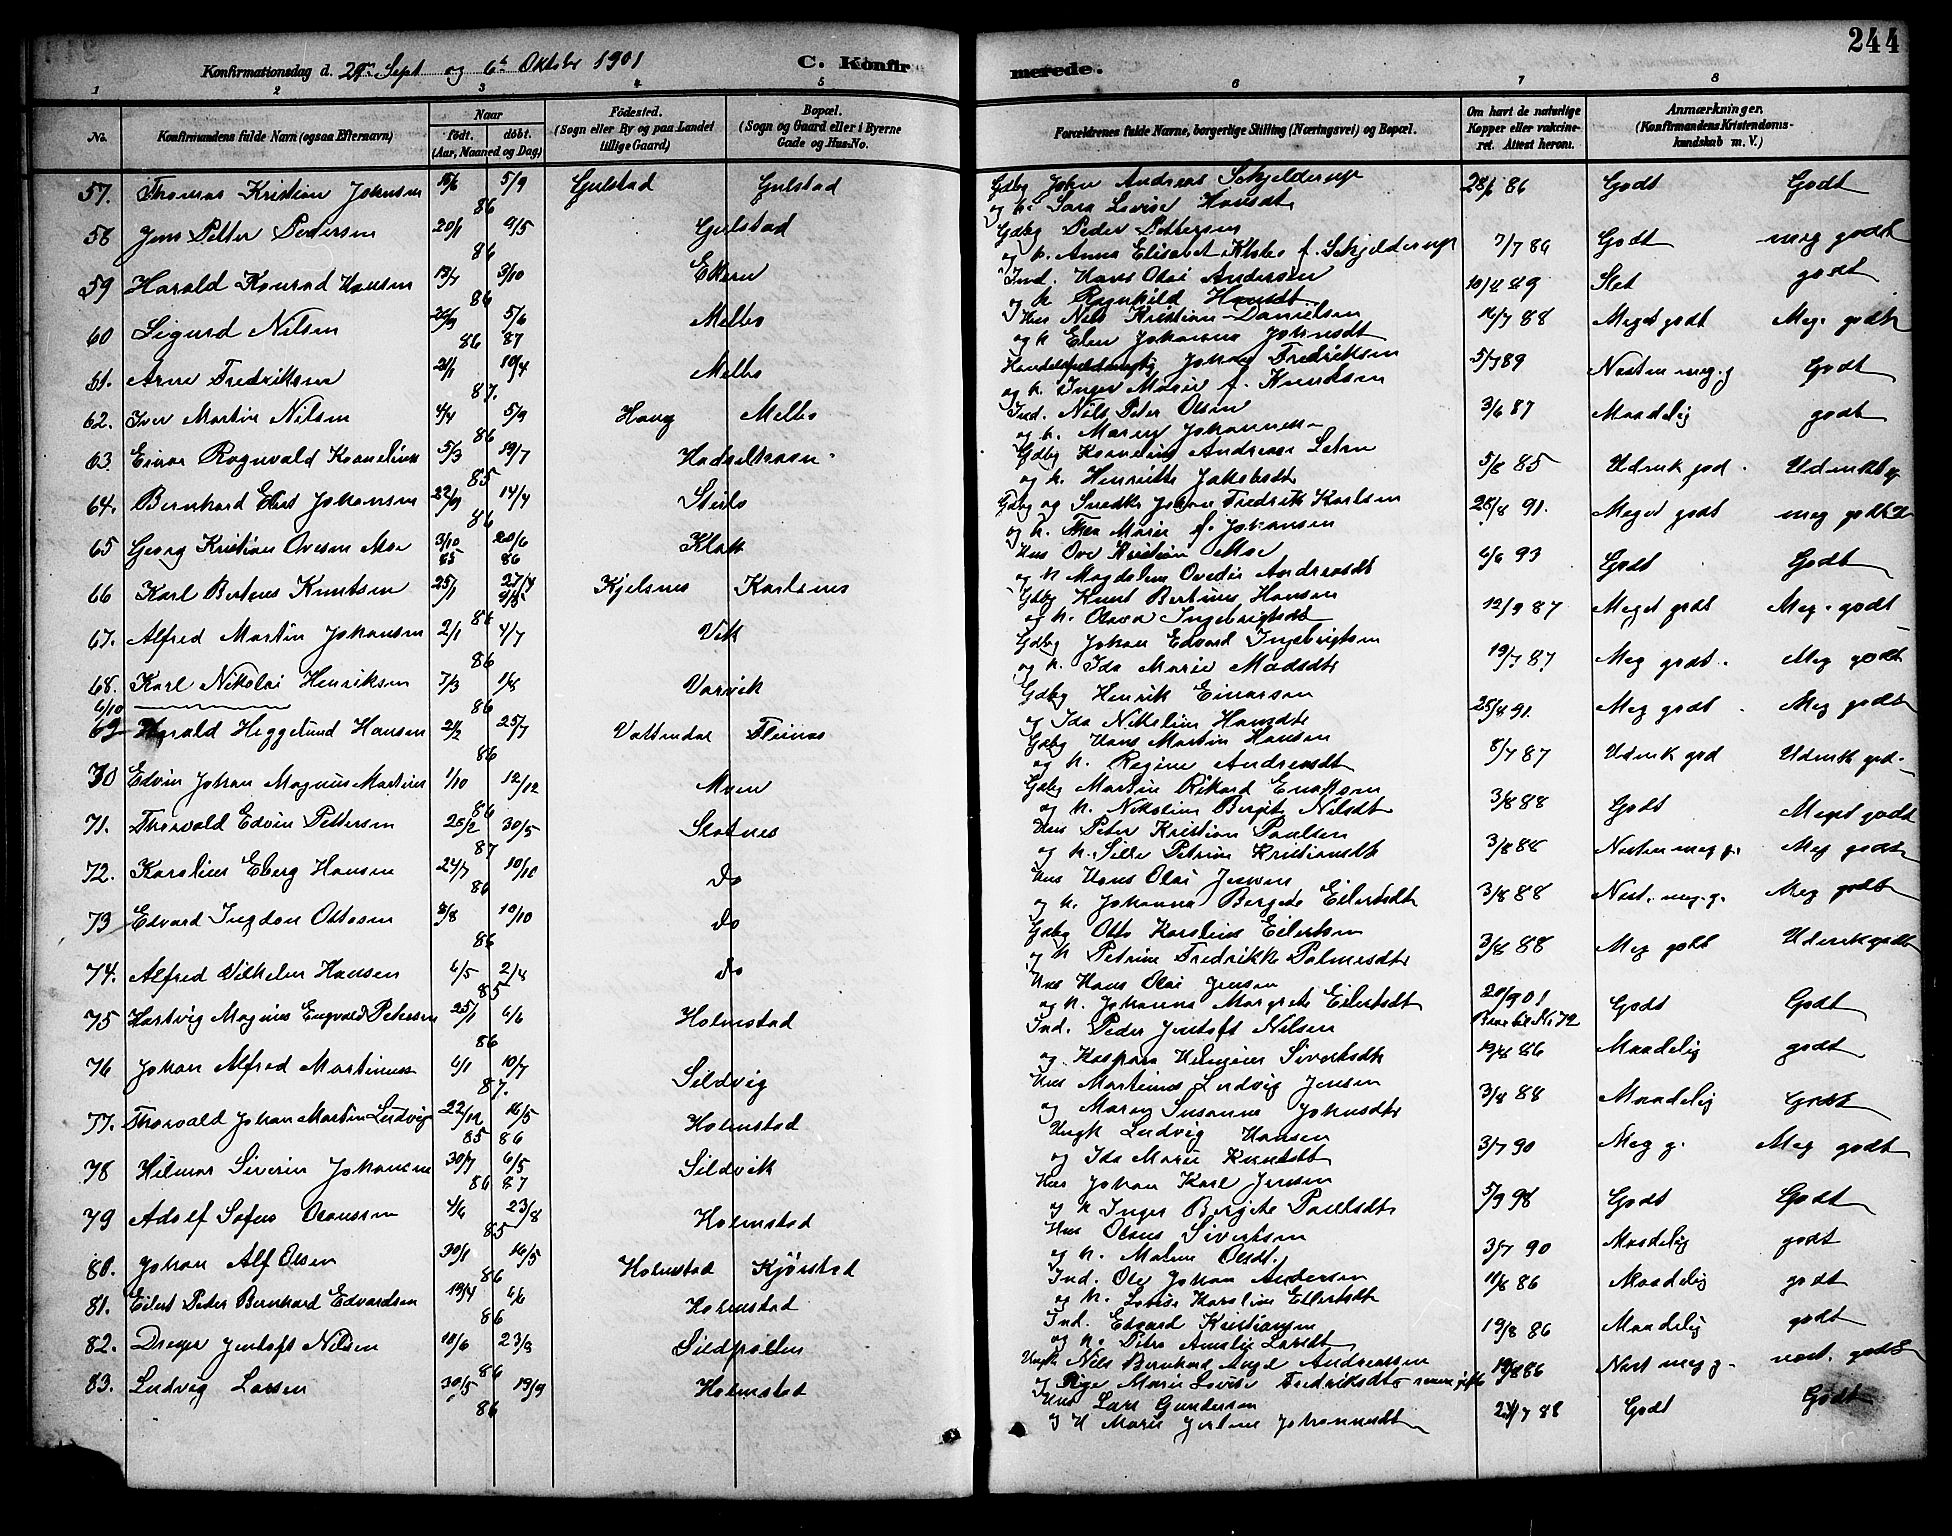 244
Konfirmationsdag d. 29de Sept og 6te Oktober 1901
C. Konfirmerede.
1 2 3 4 5 6 7 8
No.
Konfirmandens fulde Navn (ogsaa Efternavn)
Naar
født. døbt.
(Aar, Maaned og Dag)
Fødested.
(Sogn eller By og paa Landet
tillige Gaard)
Bopæl.
(Sogn og Gaard eller i Byerne
Gade og Hus-No.
Forældrenes fulde Navne, borgerlige Stilling (Næringsvei) og Bopæl.
Om havt de naturlige
Kopper eller vakcine-
ret. Attest herom.
Anmærkninger.
(Konfirmandens Kristendoms-
kundskab m. V.)
57. Thomas Kristian Johnsen 15/6 86 5/9 Gulstad Gulstad Gdbg John Andreas Schjelderup 28/6 86 Godt Godt
og h. Sara Lovise Hansdt
58 Jens Petter Pedersen 20/1 86 9/5 Gulstad Gdbg Peder Pettersen
og h. Anna Elisabet Klæbo f. Schjelderup 7/7 86 Godt meg godt
59 Harald Konrad Hansen 13/7 86 3/10 Ekren Ind. Hans Olai Andersen 10/4 89 Slet godt
og h Ragnhild Hansdt
60 Sigurd Nilsen 86 5/6 87 Melbo Hus Nils Kristian Danielsen 16/7 88 Meget godt Meg. godt
og h Elen Johanna Johnsdt
61. Arne Fredriksen 21/1 87. 10/4 Melbo Johan Fredriksen 5/7 89 Næsten meg. g Godt
og h. Inger Marie f. Knudsen
62. Iver Martin Nilsen 4/4 86 5/9 Haug Melbo Ind. Nils Peter Olsen 3/6 87 Maadelig godt
og h. Maren Johannesen
63 Einar Ragnvald Kornelius 5/3 85 19/7 Hadselhavn Gdbg Kornelius Andreas 5/8 85 Udmk god. Udmkt g
og h. Henriette Jakobsdt
64. Bernhard Elert Johansen 22/9 86 14/4 Steilo Gdbg og Snedk. Johan Fredrik Karlsen 28/8 91. Meget godt meg godt
og h. Thea Marie f. Johansen
65 Georg Kristian Ovesen Moe 3/10 85 20/6 86 Klakk Hus Ove Kristian Moe 6/6 93 Godt Godt
og h Magdalena Ovedie Andreasdt
66 Karl Bertinus Knutsen 25/1 86 27/4 Kjelsnes Karlsnes Gdbg Knut Bertinus Hansen 12/9 87 Meget godt Meg. godt
og h. Olava Ingebrigtsdt
67. Alfred Martin Johansen 2/1 86 4/7 Vik Gdbg Johan Edvard Ingebrigtsen 19/7 87 Meg godt. Meg godt
og h. Ida Marie Madsdt
68. Karl Nikolai Henriksen 7/3 86 1/8 Varvik Gdbg Henrik Einarsen 25/8 91. Meg godt Meg godt
og Ida Nikoline Hansdt
6/10
69 Harald Heggelund Hansen 21/2 86 25/7 Vattendal Fleinnes Gdbg Hans Martin Hansen 8/7 87 Udmk god Udmk god.
og h. Regine Andreasdt
70 Edvin Johan Magnus Martins 1/10 86 12/12 Moen Gdbg Martin Rikard Enoksen 3/8 88 Godt Meget godt
og h. Nikoline Bergite Nilsdt
71. Thorvald Edvin Pettersen 25/2 87 30/5 Slotnes Hus Peter Kristian Paulsen 3/8 88 Næsten meg g. Meg godt
og h. Sille Petrine Kristiansdt
72. Karolius Eberg Hansen 24/7 86 10/10 do Hus Hans Olai Jensen 3/8 88 Næst. meg. g. Meg godt
og h. Johanna Bergete Eilertsdt
73 Edvard Ingdon Ottosen 8/8 86 10/10 do Gdbg Otto Karolius Eilertsen 3/8 88 Meg godt Udmrk godt
og h Petrine Fredrikke Palmesdt
74. Alfred Vilhelm Hansen 6/5 85 2/8 do Hus Hans Olai Jensen 20/9 01 Godt Godt
og h. Johanna Margrete Eilertsdt Bror til No 72
75 Hartvig Magnus Engvald Petersen 25/1 86 6/6 Holmstad Ind. Peder Jentoft Nilsen 19/8 86 Maadelig godt
og Kaspara Helmine Sivertsdt
76 Johan Alfred Martinus 6/1 87. 10/7 Sildvig Hus Martinus Ludvig Jensen 3/8 88 Maadelig Godt
og Maren Susanne Johnsdt
77. Thorvald Johan Martin Ludvig 22/12 85 16/5 86 Holmstad Ungk Ludvig Hansen 3/7 90 Meg g. Meg godt
og Ida Marie Knudsdt
78 Hilmar Siverin Johansen 30/7 86 6/5 87 Sildvik Hus Johan Karl Jensen 5/9 98 Godt Godt
og h Inger Bergete Paulsdt
79 Adolf Sofus Olaussen 4/6 85 23/8 Holmstad Hus Olaus Sivertsen 3/7 90 Maadelig godt
og h. Malene Olsdt.
80. Johan Alf Olsen 30/1 86 16/5 Holmstad Kjørstad Ind. Ole Johan Andersen 11/8 86 Maadelig godt
og h. Lovise Karoline Eilertsdt
81. Eilert Peder Bernhard Edvardsen 19/4 86 6/6 Holmstad Ind. Edvard Kristiansen 19/8 86 Maadelig godt
og h. Petra Amalie Larsdt
82. Dreyer Jentoft Nilsen 10/6 86 23/8 Sildpollen Ungk Nils Bernhard Angel Andreassen 19/8 86 Næst meg g. næst. godt
og Pige Marie Lovise Fredriksdt
83. Ludvig Larsen 30/5 86 19/9 Holmstad Hus Lars Gundersen 24/7 88 Godt Godt
og H Marie Johannesdt